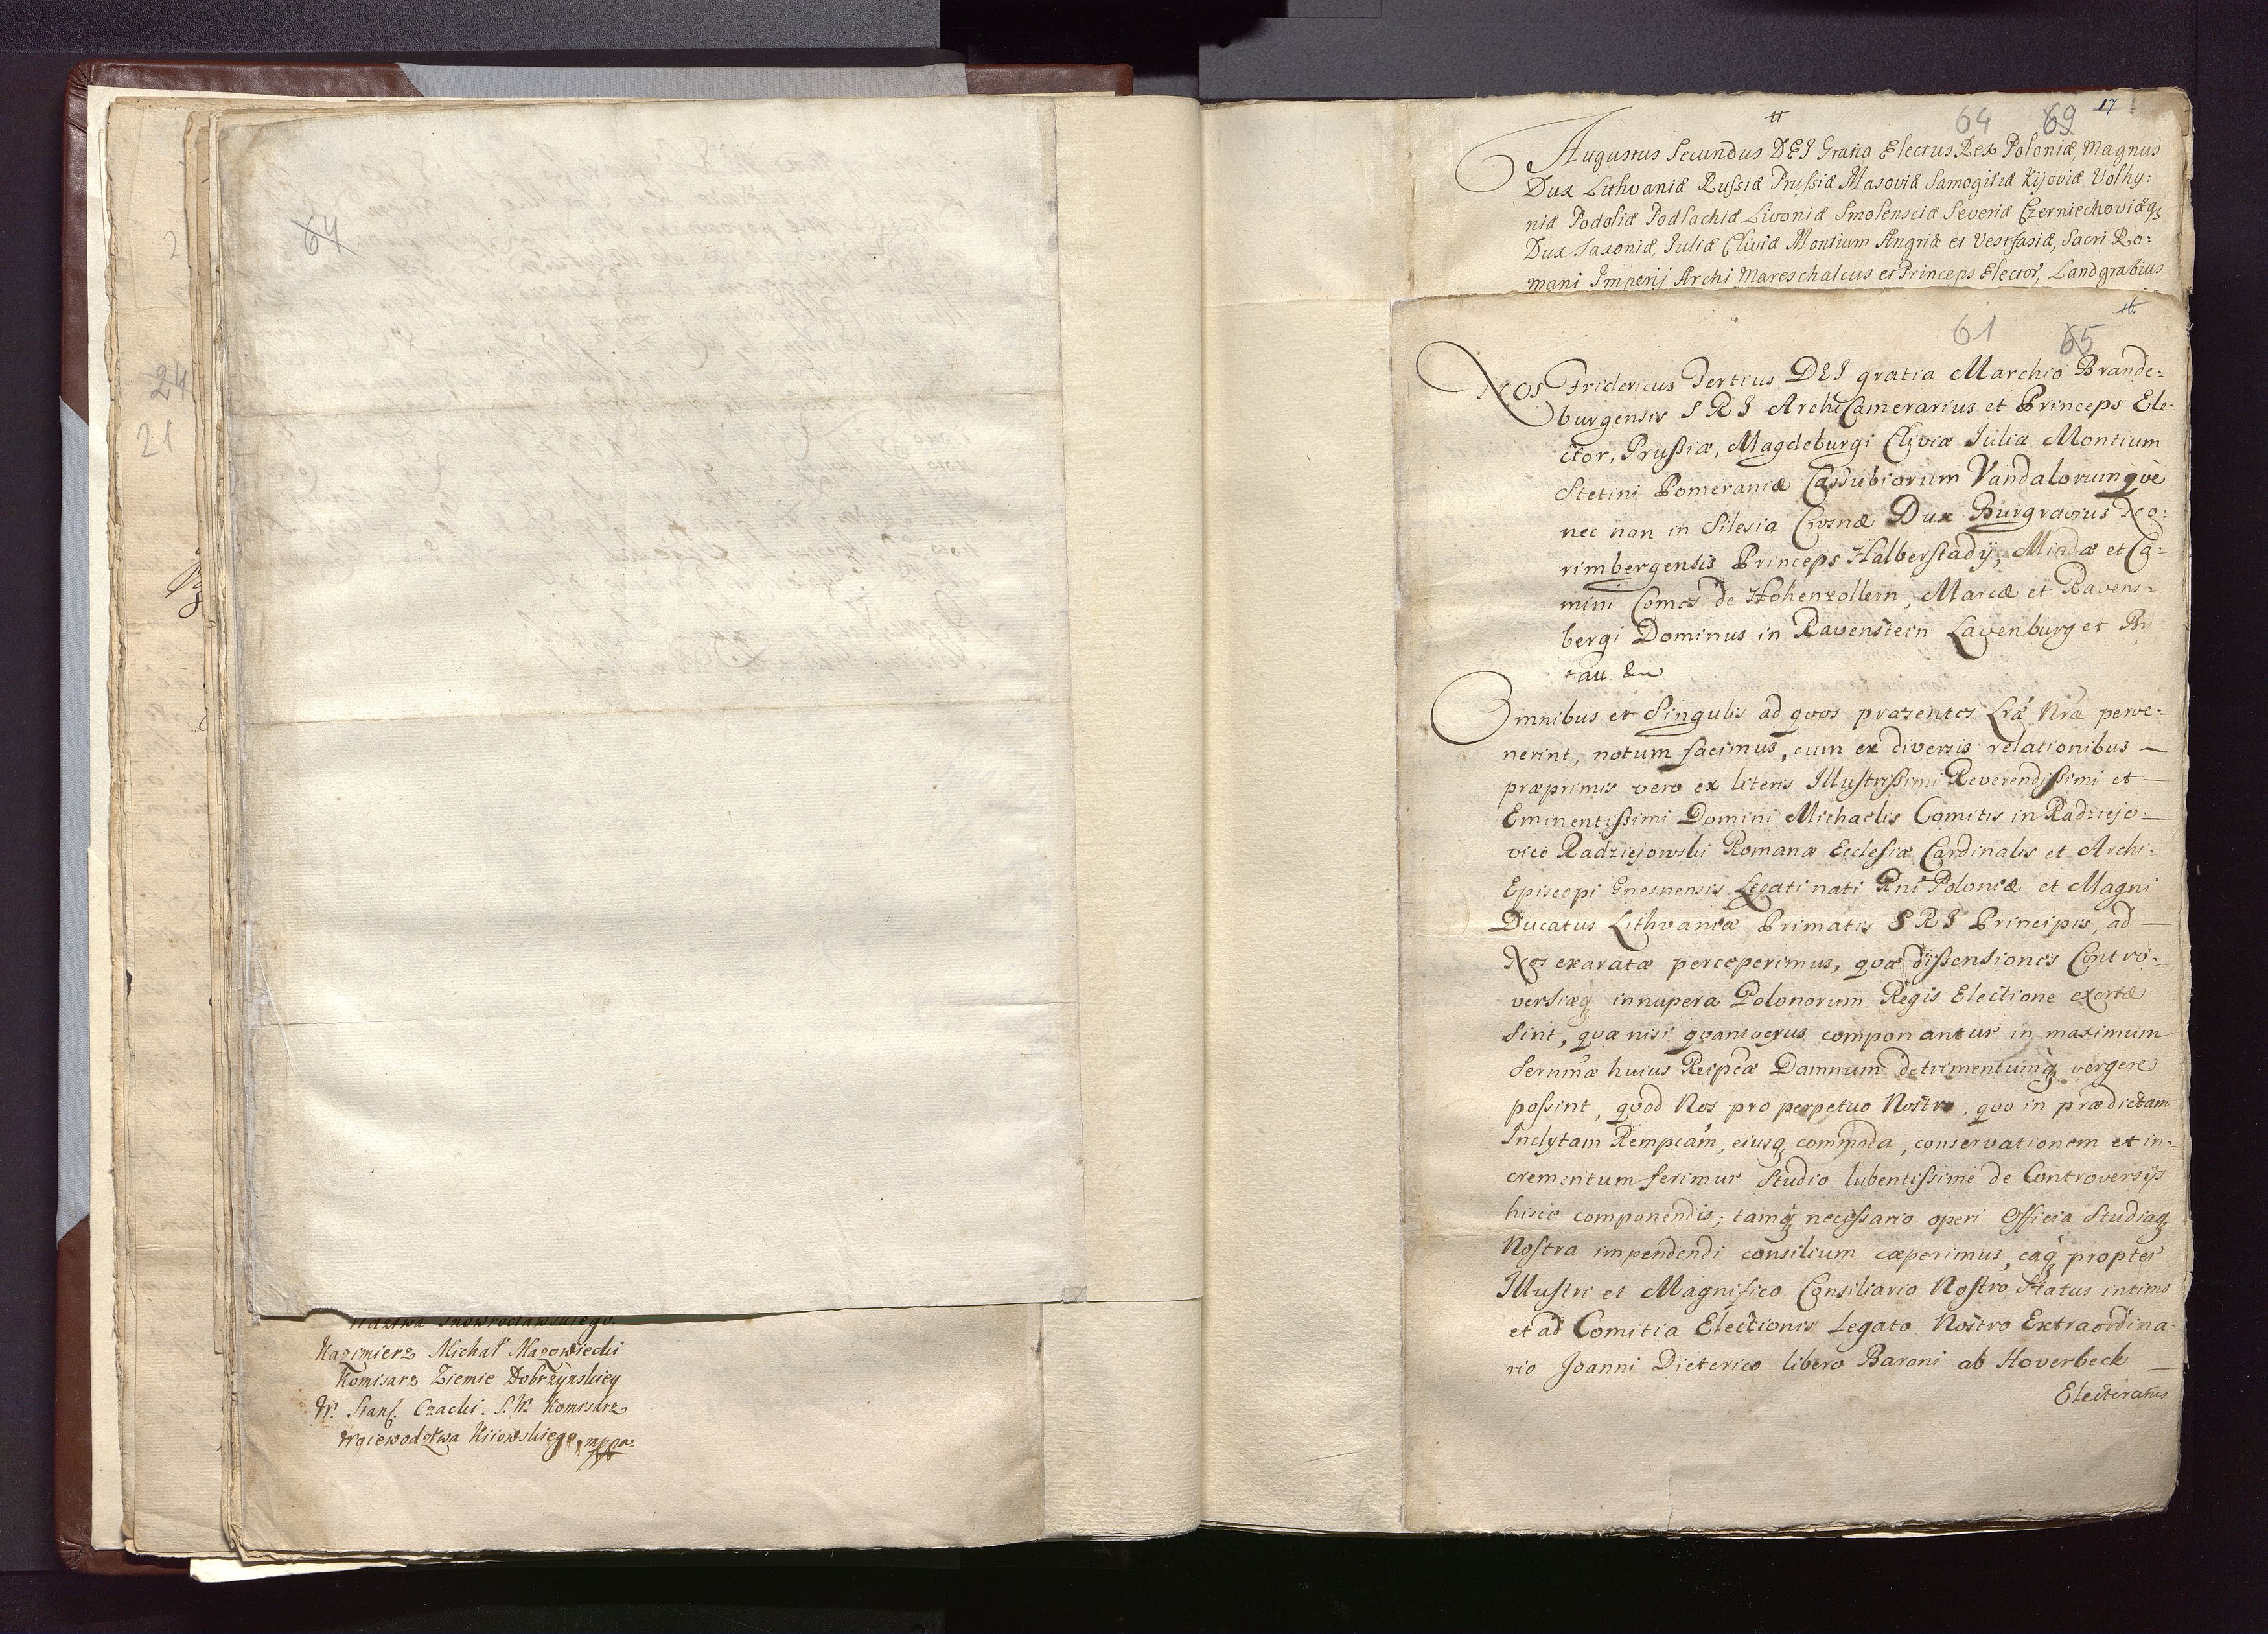 64
24
21
Kazimierz Michał Mazowiecki
Komisarz Ziemie Dobrzÿnskiey
W. Stanſ. Czacki. S. W. Komisarz
Woiewodztwa Kiiowskiego, mppa
64 69 17
Augustus Secundus DEI Gratia Electus Rex Poloniæ, Magnus
Dux Lithvaniæ Rußiæ Prußiæ Masoviæ Samogitiæ Kijoviæ Volhy:
niæ Podoliæ Podlachiæ Livoniæ Smolensciæ Severiæ Czerniechoviæq3
Dux Saxoniæ, Juliæ Cliviæ Montium Angriæ et Vestfaliæ, Sacri Ro:
mani Imperij Archi Mareschalcus et Princeps Elector, Landgrabius
61 65
Nos Fridericus Tertius DEI gratia Marchio Brande:
burgensis S R I ArchiCamerarius et Princeps Ele:
ctor, Prußiæ, Magdeburgi Cliviæ Juliæ Montium
Stetini Pomeraniæ Cassubiorum Vandalorumqve
nec non in Silesia Crosnæ Dux Burgravius No:
rimbergensis Princeps Halberstadÿ, Mindæ et Ca:
mini Comes de Hohenzollern, Marcæ et Ravens:
bergi Dominus in Ravenstein Lavenburg et
tau
Omnibus et Singulis ad qvos præsentes Lræ Nræ perve:
nerint, notum facimus, cum ex diversis relationibus —
præprimis vero ex literis Illustrißimi Reverendißimi et —
Eminentißimi Domini Michaelis Comitis in Radziejo: —
vice Radziejowski Romanæ Ecclesiæ Cardinalis et Archi:
Episcopi Gnesnensis Legati nati Rni Poloniæ et Magni
Ducatus Lithvaniæ Primatis S R I Principis, ad —
Nos exaratæ perceperimus, qvæ dißensiones Contro:
versiæq3 in nupera Polonorum Regis Electione exortæ
sint, qvæ nisi qvantocyus componantur in maximum
Serenmæ huius Reipcæ Damnum detrimentumq3 vergere
poßint, qvod Nos pro perpetuo Nostro, qvo in prædictam
Inclytam Rempcam, eiusq3 commoda, conservationem et in:
crementum ferimur Studio lubentißime de Controversijs
hisce componendis; tamq3 neceßario operi Officia Studiaq3
Nostra impendendi consilium cæperimus, eaq3 propter
Illustri et Magnifico Consiliario Nostro Status intimo
et ad Comitia Electionis Legato Nostro Extraordina:
rio Joanni Dieterico libero Baroni ab Hoverbeck —
Electoratus